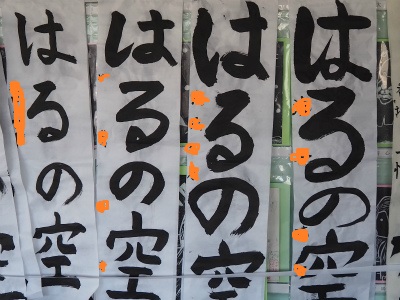 はるの空
はるの空
はるの空
はるの空